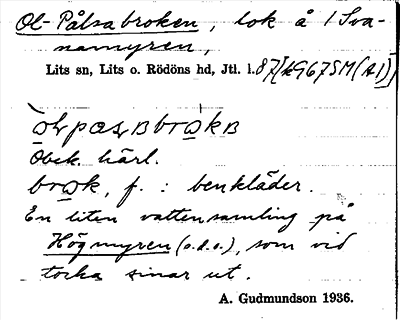 Ol-Pålsabroken, lok å /Sva-
namyren,
Lits sn, Lits o. Rödöns hd, Jtl. l.87[AG67SM(A1)]
Obek. härl.
brok, f. : benkläder.
En liten vattensamling på
Högmyren (o.d.o.), som vid
torka sinar ut.
A. Gudmundson 1936.